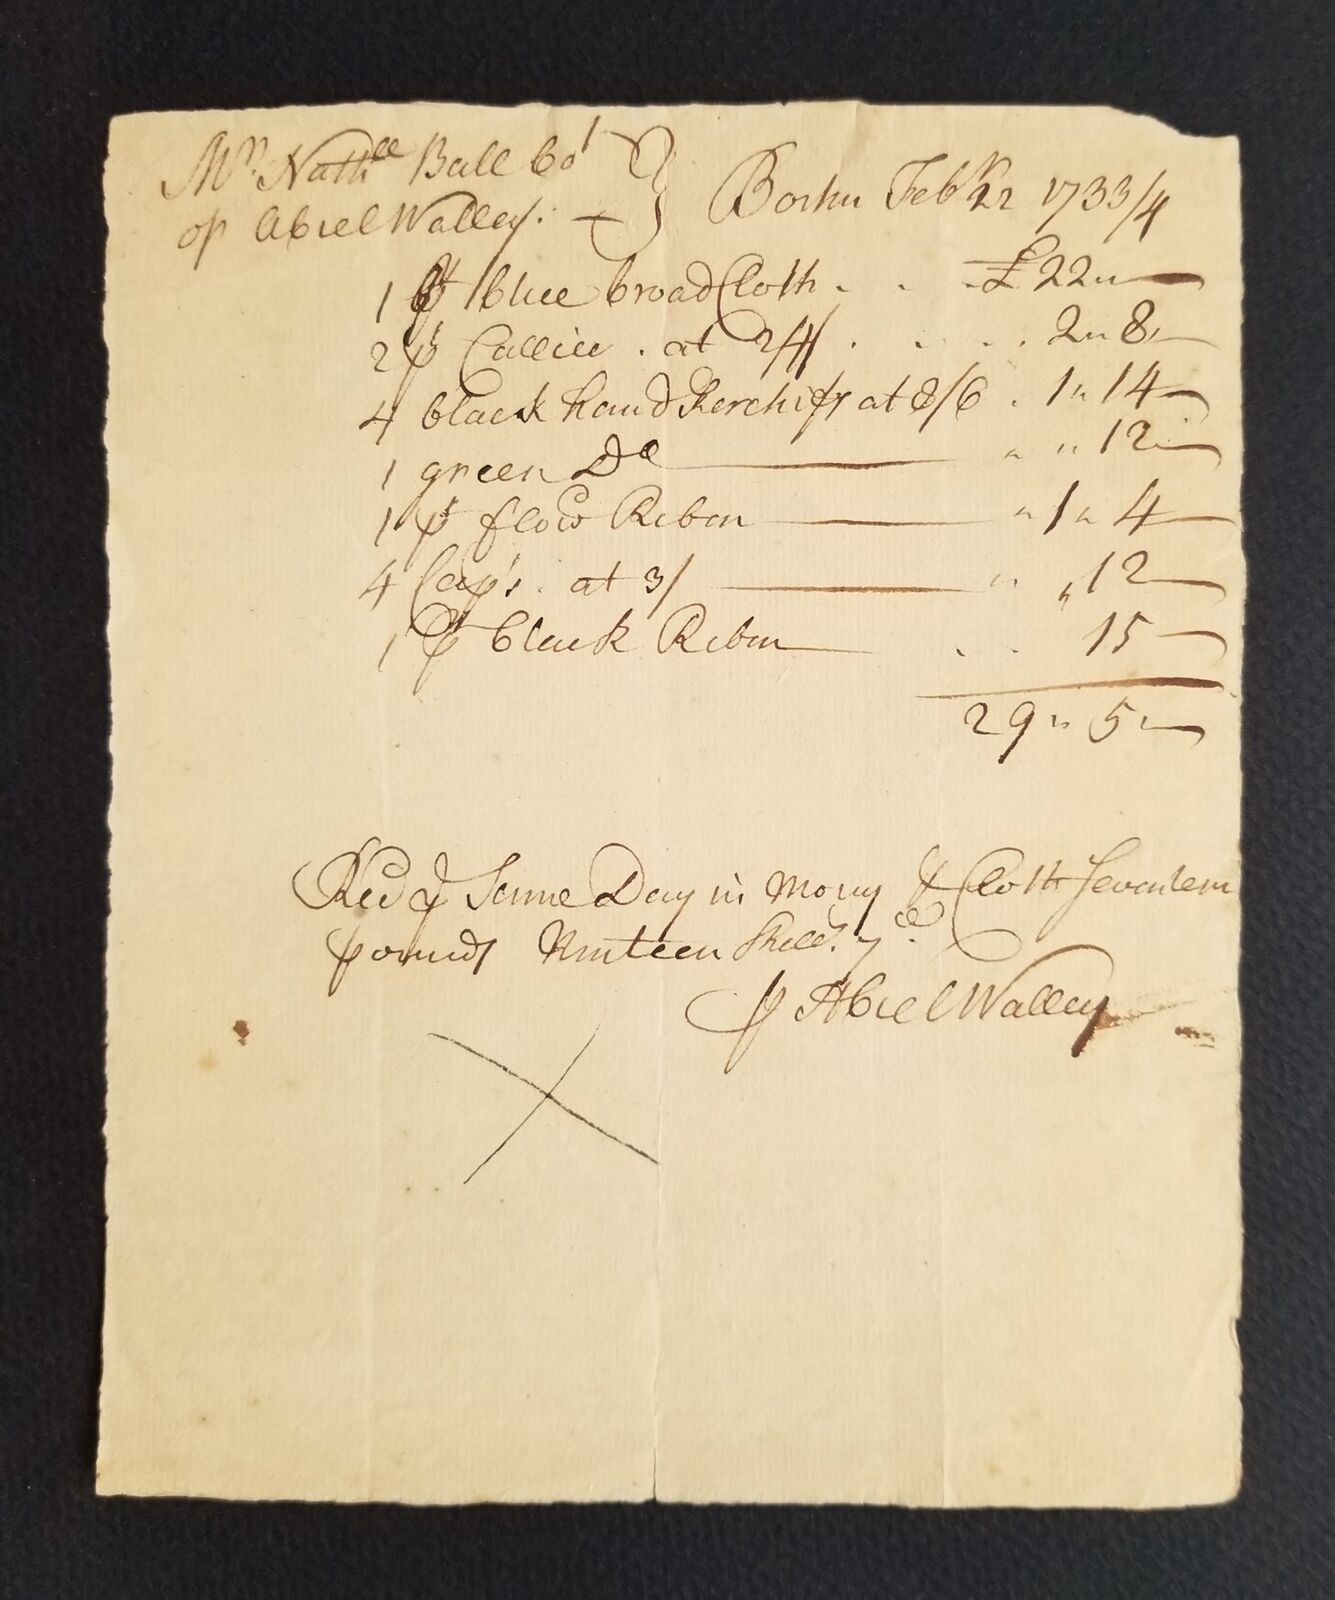 Mr. Nathll Ball bot
of Abiel Walley. Boston Febr 22 1733/4
1 ps blue broad Cloth . . . £22"—
2 ps Callico . at 24/ . . . . 2" 8 —
4 black handkerchifs at 8/6 . 1" 14 —
1 green Do — " " 12 —
1 ps flowd Ribon — " 1 " 4 —
4 Cap's . at 3/ — " " 12 —
1 ps black Ribon — . . 15 —
29 " 5 " —
Recd ye Same Day in mony & Cloth Seventen
pounds Ninteen Shills.
p Abiel Walley